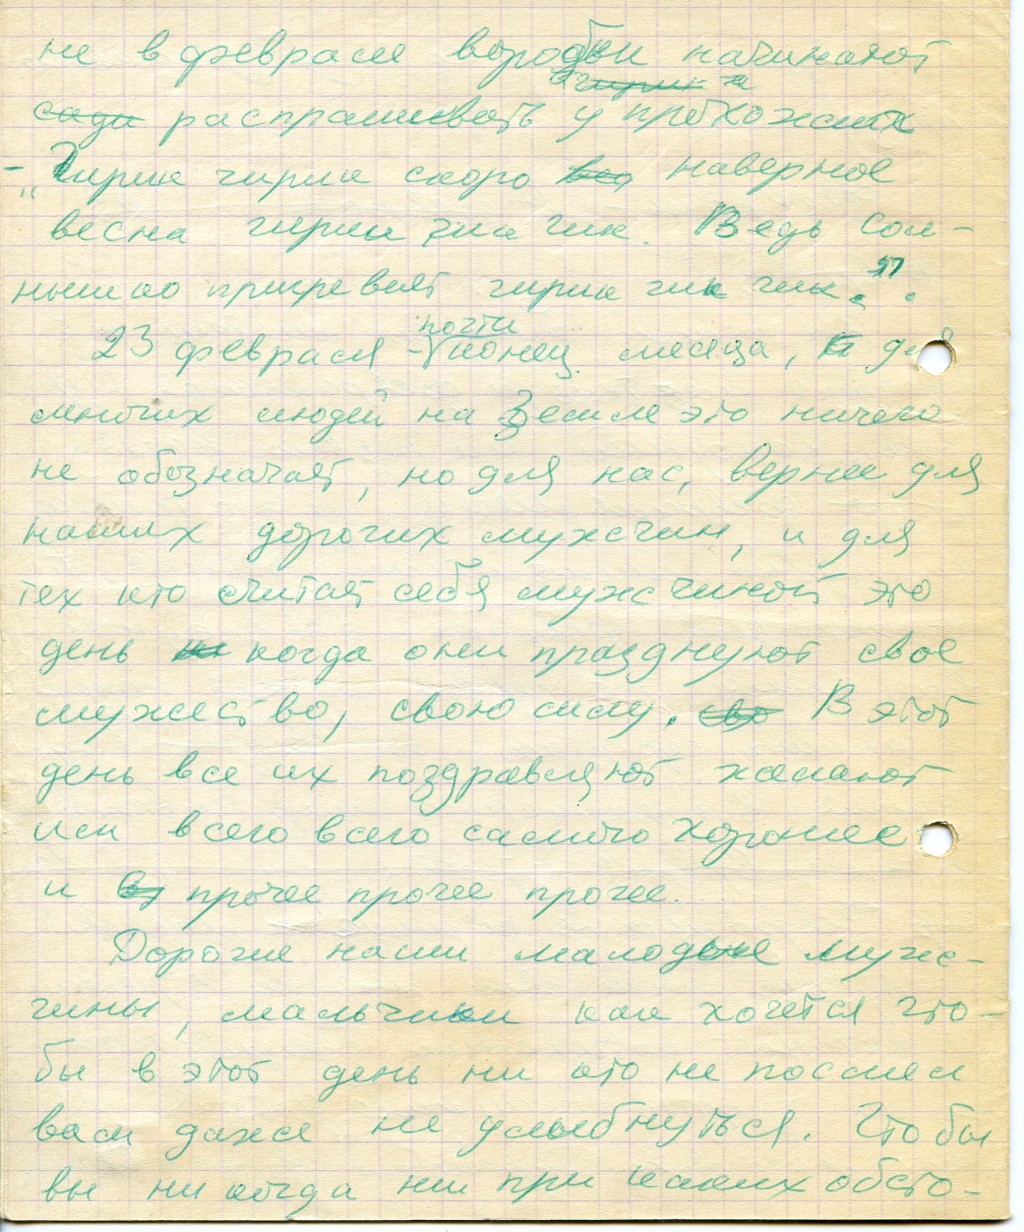 не в феврале воробьи начинают
распрашивать у прохожих
- „Чирик чирик скоро наверное
весна чирик чик чик. Ведь сол-
нышко пригревает чирик чик чик."
почти
23 февраля - конец месяца, для
многих людей на Земле это ничего
не обозначает, но для нас, вернее для
наших дорогих мужчин, и для
тех кто считает себя мужчиной это
день когда они празднуют свое
мужество, свою силу. В этот
день все их поздравляют желают
им всего всего самого хорошее
и прочее прочее прочее.
Дорогие наши молодые муж-
чины, мальчики как хочется что-
бы в этот день ни кто не посмел
вам даже не улыбнуться. Что бы
вы ни когда ни при каких обсто-